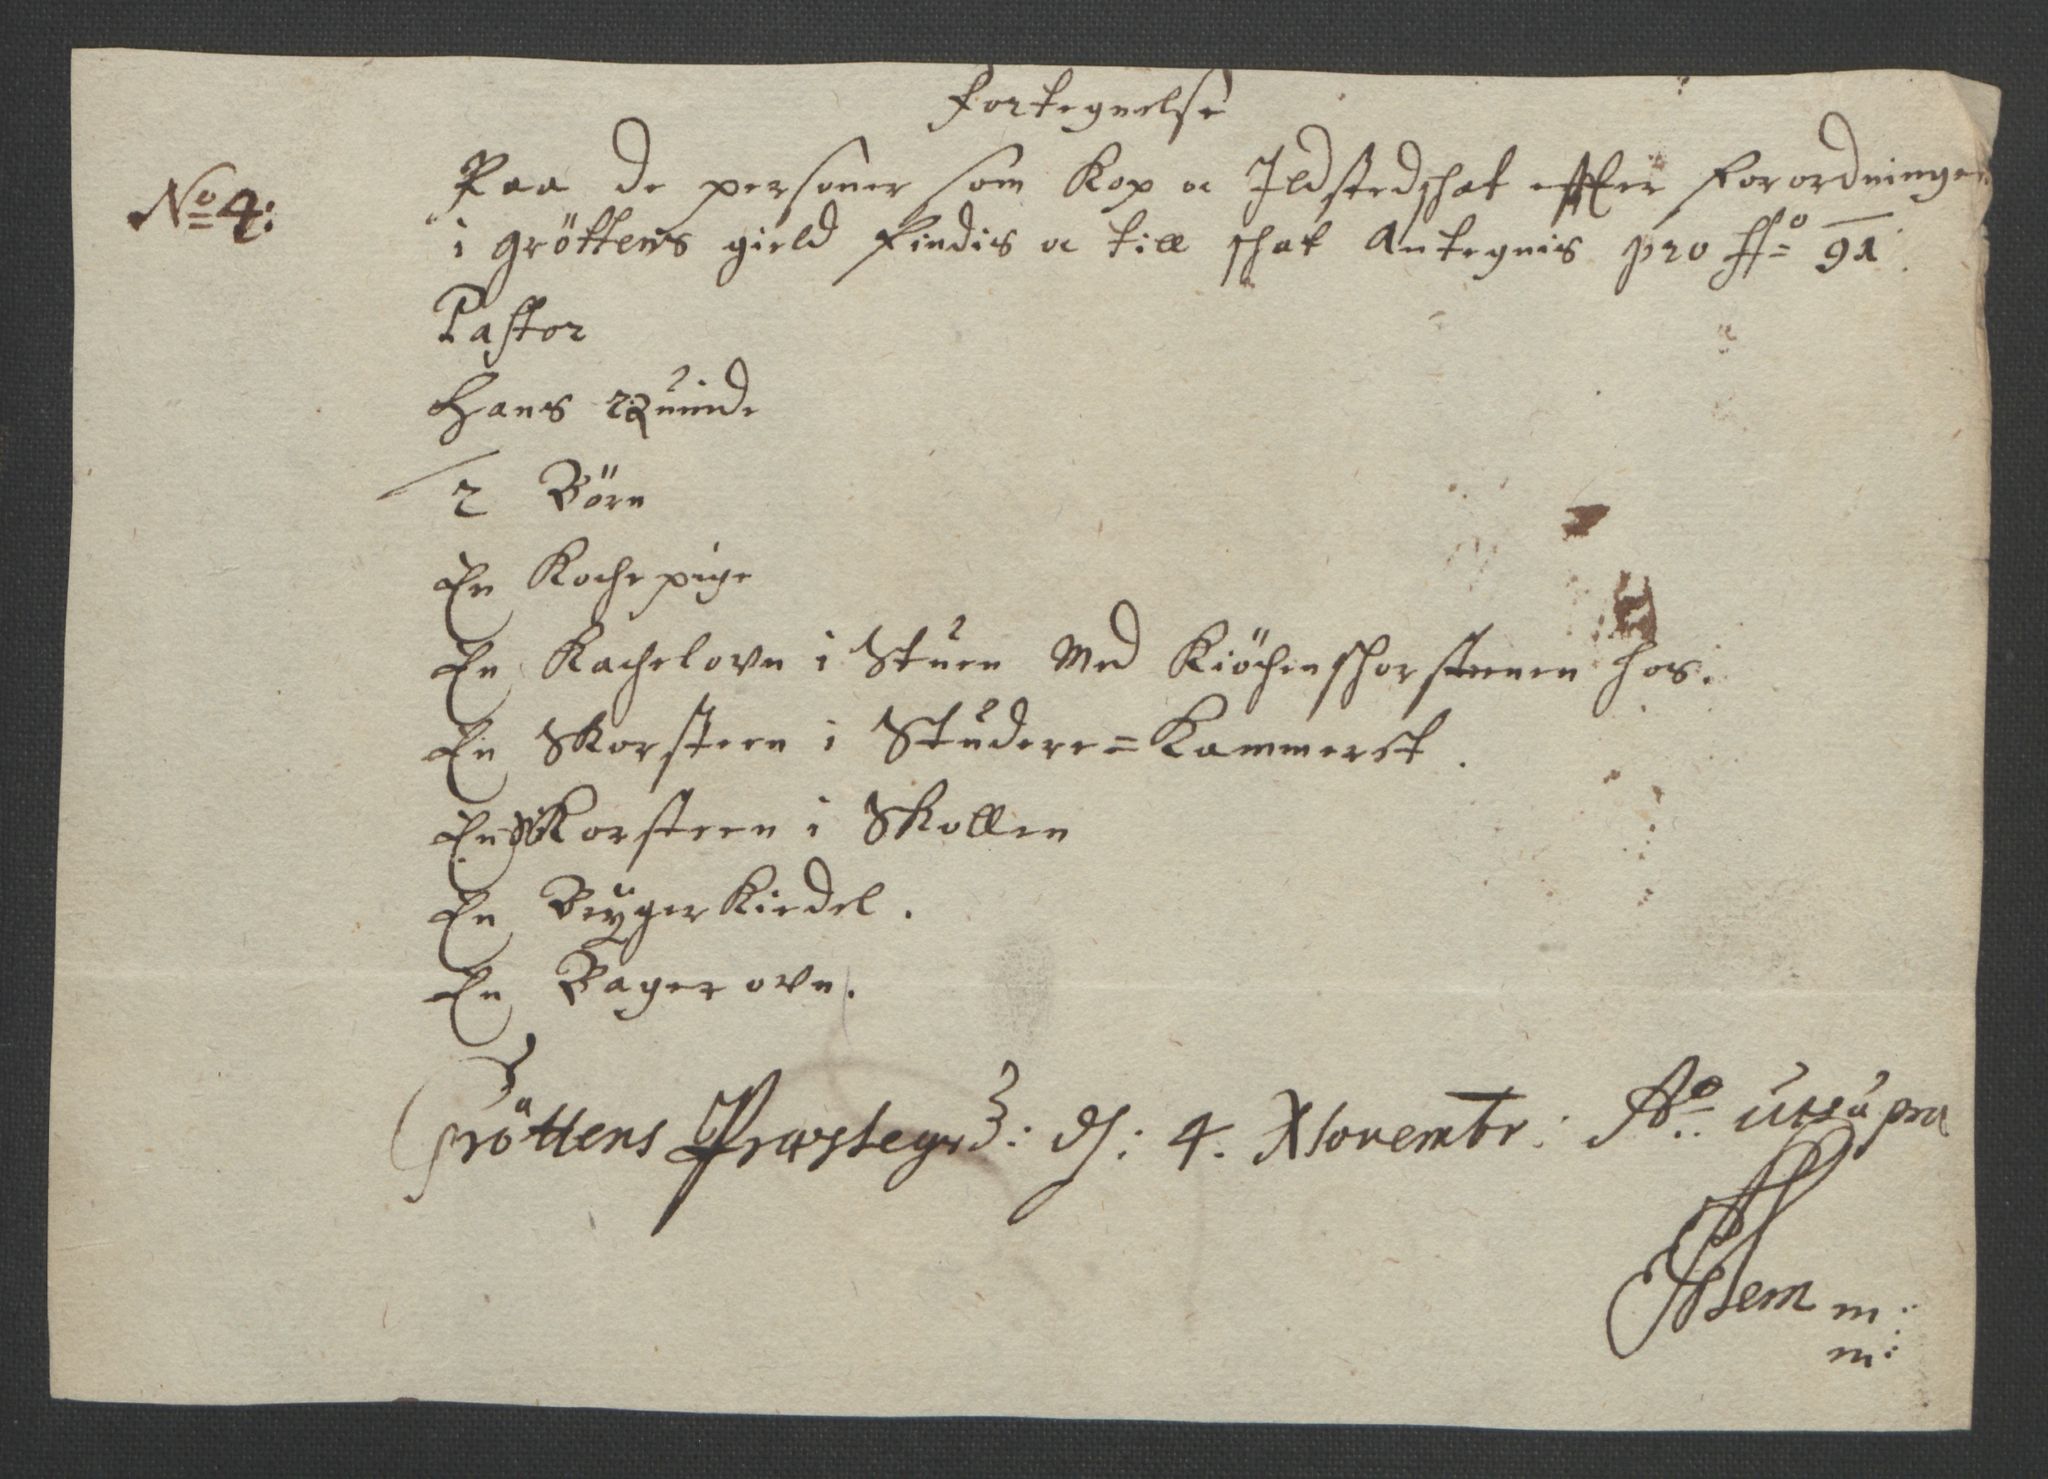 Fortegnelse
No 4:
Paa de personer som Kop oc Ildstedschat effter Forordningen
i Gröttens gield Findis oc till schat Antegnis pro Ao 91.
Pastor
Hans Quinde
2 Börn
En Koche pige
En Kachelovn i Stuen Med Kiöchenschorsteenen hos.
En Skorsteen i Studere=Kammerst.
En Skorsteen i Skollen
En Brÿger Kiedel.
En Bager ovn.
Gröttens Præstegrd: d: 4. Novembr: Ao ut supra
m:
m: